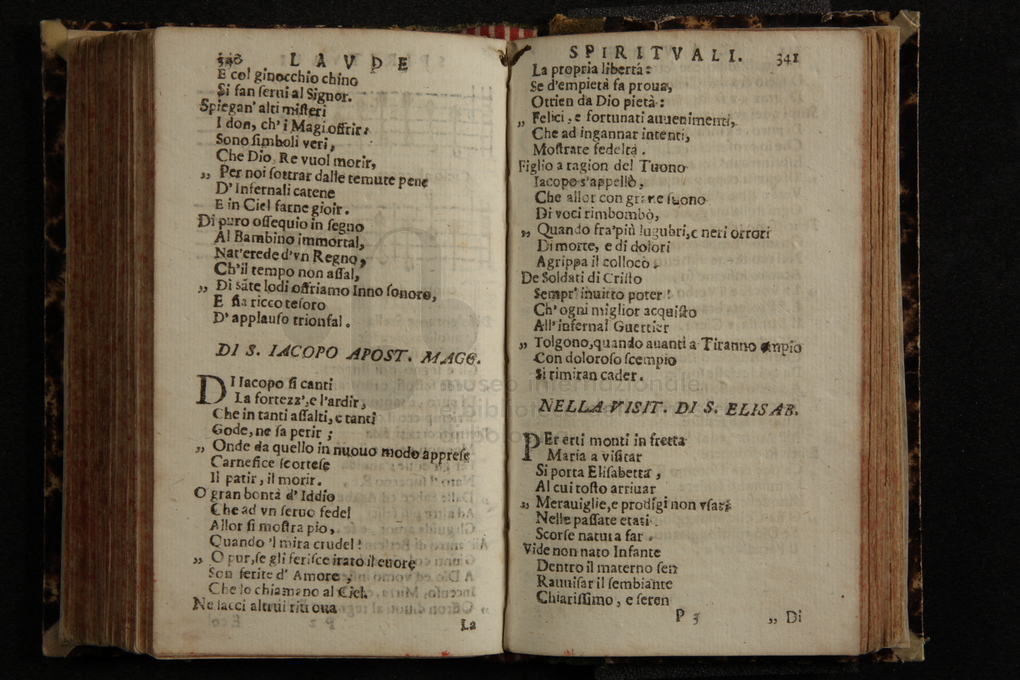 340 LAVDE
E col ginocchio chino
Si fan serui al Signor.
Spiegan' alti misteri
I don, ch' i Magi offrir:
Sono simboli veri,
Che Dio, Re vuol morir,
„ Per noi sottrar dalle temute pene
D' Infernali catene
E in Ciel farne gioir.
Di puro ossequio in segno
Al Bambino immortal,
Nat'erede d'vn Regno,
Ch'il tempo non assal,
„ Di sãte lodi offriamo Inno sonoro,
E sia ricco tesoro
D' applauso trionfal.
DI S. IACOPO APOST. MAGG.
DI Iacopo si canti
La fortezz', e l'ardir,
Che in tanti assalti, e tanti
Gode, ne sa perir;
„ Onde da quello in nuouo modo apprese
Carnefice scortese
Il patir, il morir.
O gran bontà d' Iddio
Che ad vn seruo fedel
Allor si mostra pio,
Quando 'l mira crudel!
„ O pur, se gli ferisce irato il cuore
Son ferite d' Amore,
Che lo chiamano al Ciel.
Ne lacci altrui ritroua
La
SPIRITVALI. 341
La propria libertà:
Se d'empietà fa proua,
Ottien da Dio pietà:
„ Felici, e fortunati auuenimenti,
Che ad ingannar intenti,
Mostrate fedeltà.
Figlio a ragion del Tuono
Iacopo s'appellò,
Che allor con graue suono
Di voci rimbombò,
„ Quando fra' più lugubri, e neri orrori
Di morte, e di dolori
Agrippa il collocò.
De Soldati di Cristo
Sempr' inuitto poter!
Ch' ogni miglior acquisto
All' infernal Guerrier
„ Tolgono, quando auanti a Tiranno empio
Con doloroso scempio
Si rimiran cader.
NELLA VISIT. DI S. ELISAB.
PEr erti monti in fretta
Maria a visitar
Si porta Elisabetta,
Al cui tosto arriuar
„ Merauiglie, e prodigi non vsati
Nelle passate etati
Scorse natura far.
Vide non nato Infante
Dentro il materno sen
Rauuisar il sembiante
Chiarissimo, e seren
P 3 „ Di